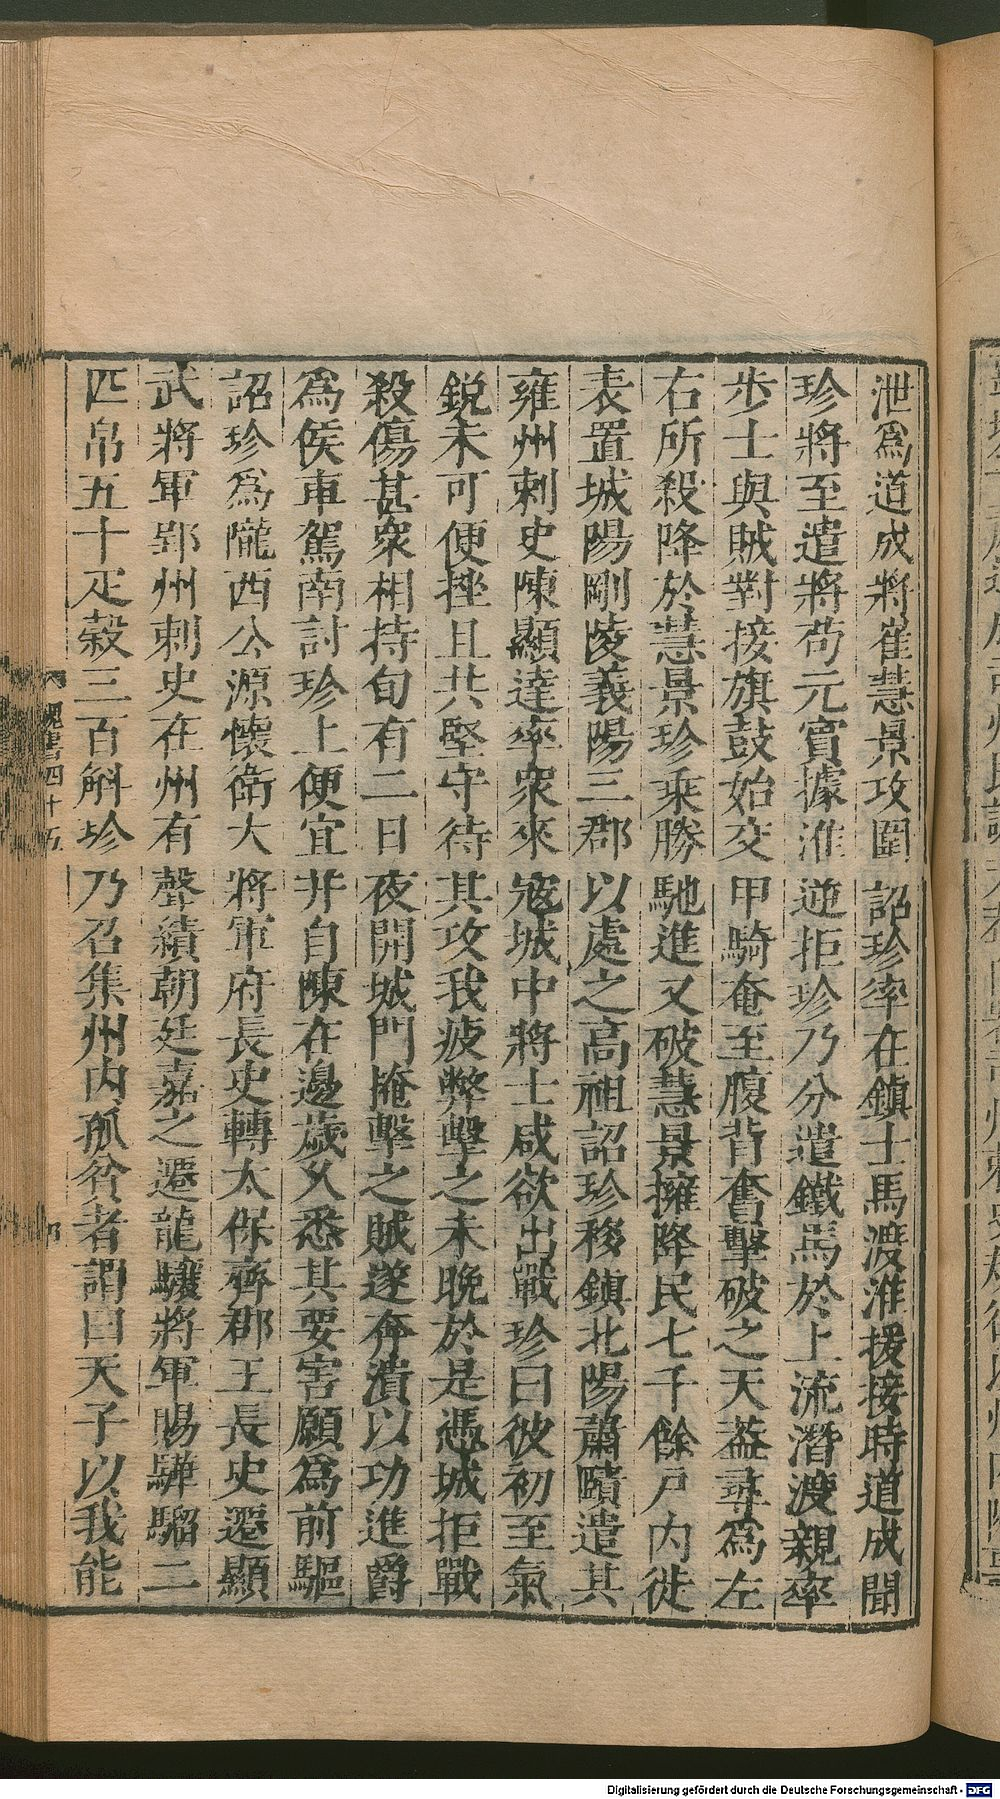 泄為道成將崔慧景攻圍詔珍率在鎮士馬渡淮援接時道成聞
珍將至遣將苟元賓據淮逆拒珍乃分遣鐵馬於上流潛渡親率
步士與賊對接旗鼓始交甲騎奄至腹背奮擊破之天蓋尋為左
右所殺降於慧景珍乘勝馳進又破慧景擁降民七千餘戶內徙
表置城陽剛陵義陽三郡以處之高祖詔珍移鎮北陽蕭賾遣其
雍州刺史陳顯達率衆來寇城中將士咸欲出戰珍曰彼初至氣
銳未可便挫且共堅守待其攻我疲弊擊之未晚於是憑城拒戰
殺傷甚衆相持旬有二日夜開城門掩擊之賊遂奔潰以功進爵
為侯車駕南討珍上便宜并自陳在邊歲久悉其要害願為前驅
詔珍為隴西公源懷衛大將軍府長史轉太保齊郡王長史遷顯
武將軍郢州刺史在州有聲績朝廷嘉之遷龍驤將軍賜驊騮二
匹帛五十疋穀三百斛珍乃召集州內孤貧者謂曰天子以我能
魏書四十五
Digitalisierung gefördert durch die Deutsche Forschungsgemeinschaft - DFG